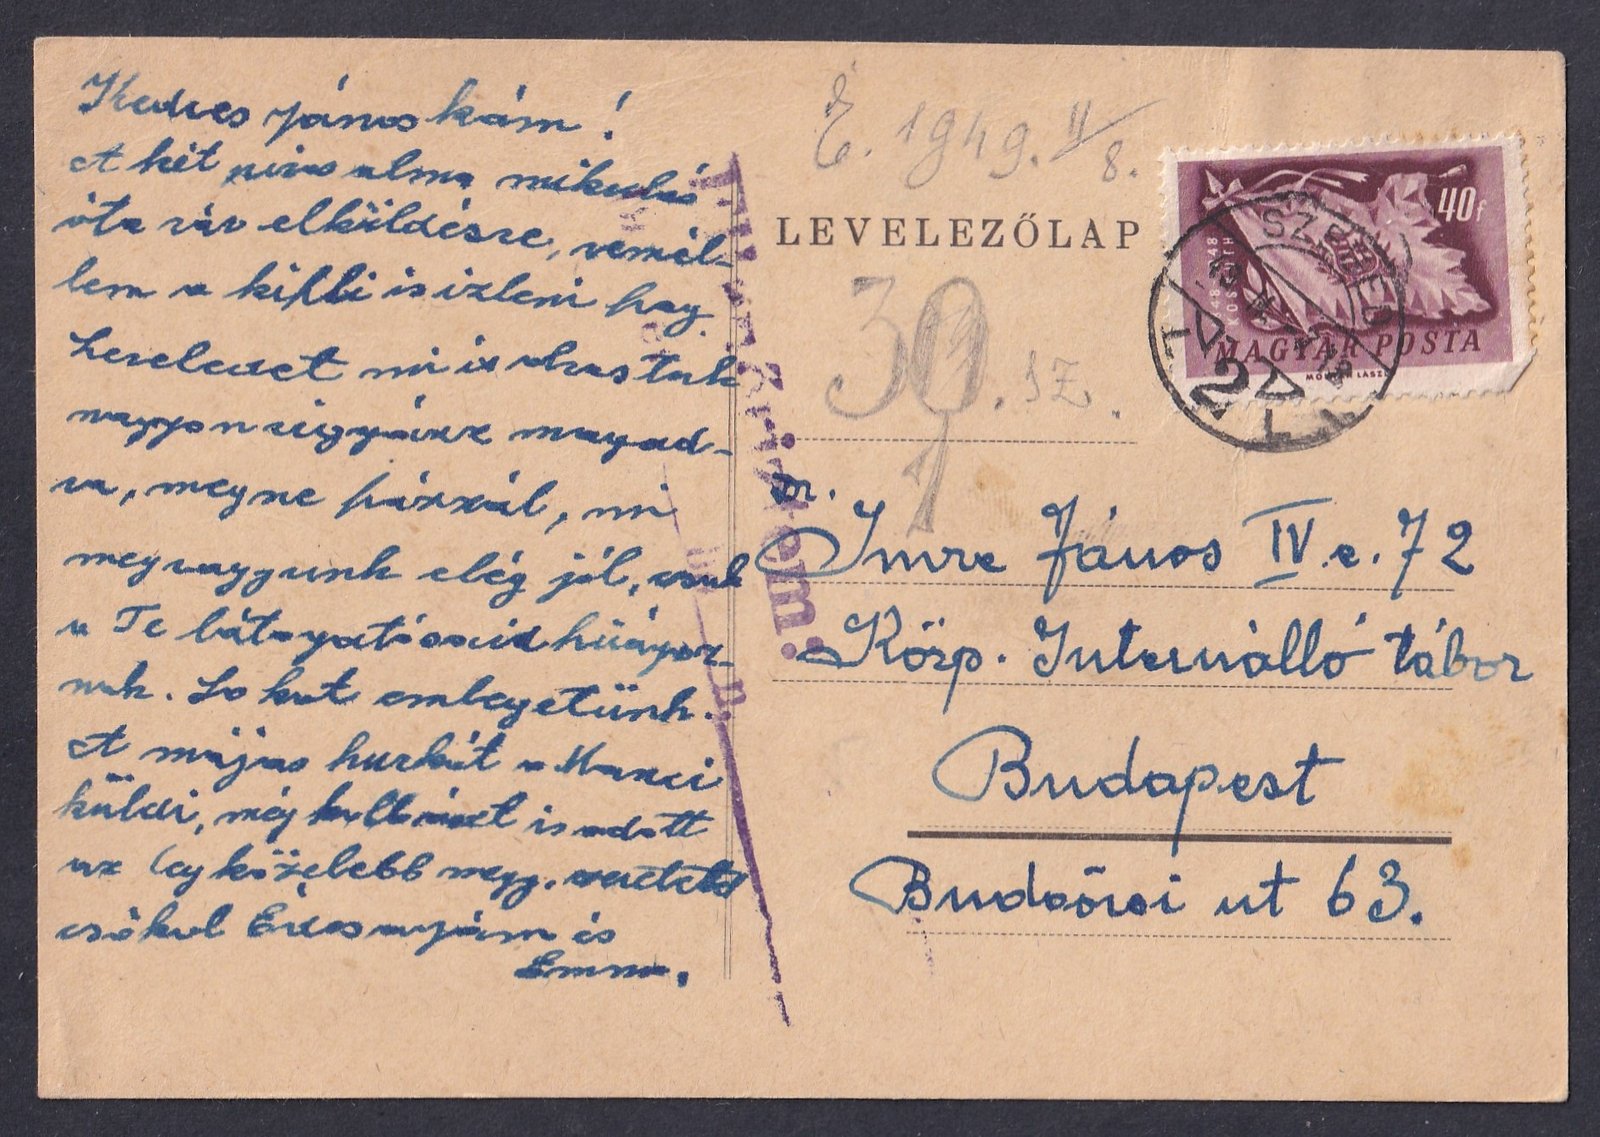 Kedves János kám!
A két piros alma mikulás
óta vár elküldésre, remél-
lem a kifli is ízleni fog.
mi is
nagyon vigyázz magad-
ra, meg ne fázzál, mi
megvagyunk elég jól, csak
a Te látogatásaid hiányoz-
nak. So kat emlegetünk.
A májas hurkát a Manci
küldi, még is adott
az így közelebb megy. szeretettel
csókol Édesanyám és
Emma.
E. 1949. II/8.
LEVELEZŐLAP
30. sz.
40f
SZEGED
2
MAGYAR POSTA
Dr.
Imre János IV. e. 72
Közp. Internálló tábor
Budapest
Budaörsi ut 63.